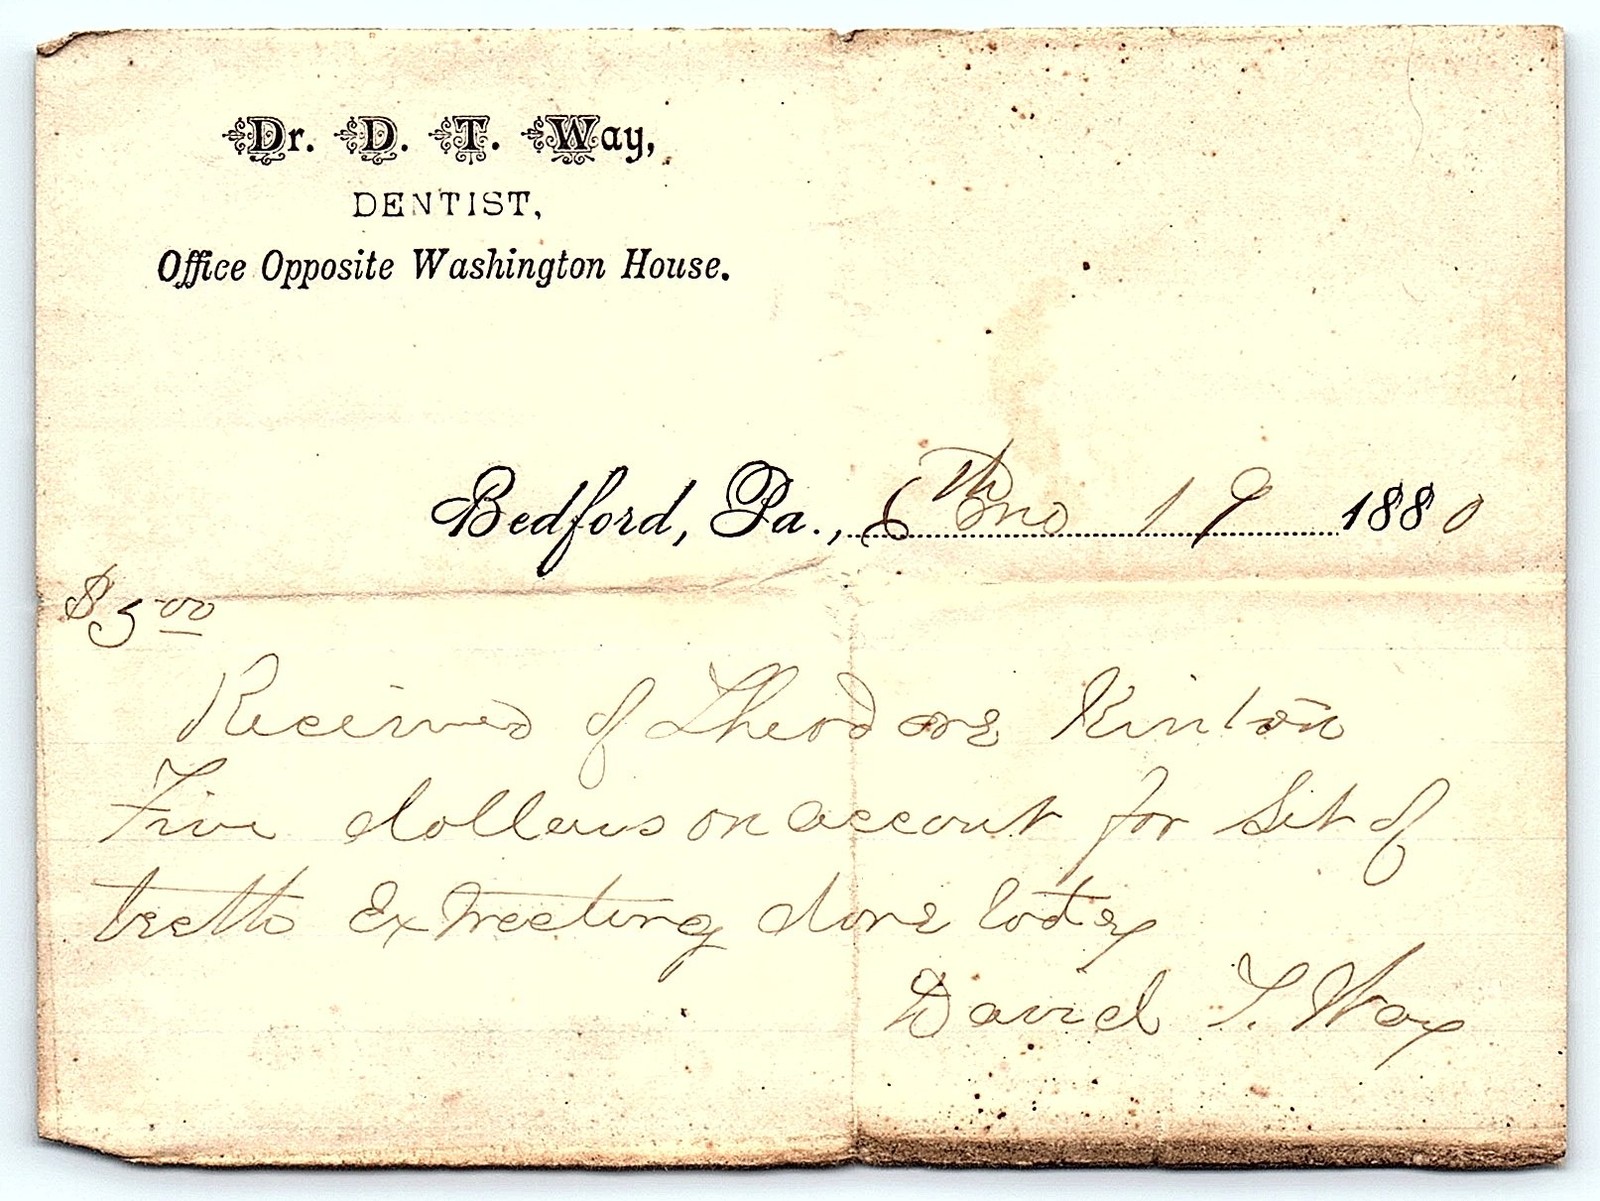 Dr. D. T. Way,
DENTIST,
Office Opposite Washington House.
Bedford, Pa., 6th mo 19 1880
$5.00
Received of Theodore Kinton
Five dollars on accout for Set of
teeth Extrecting done today
David T. Way